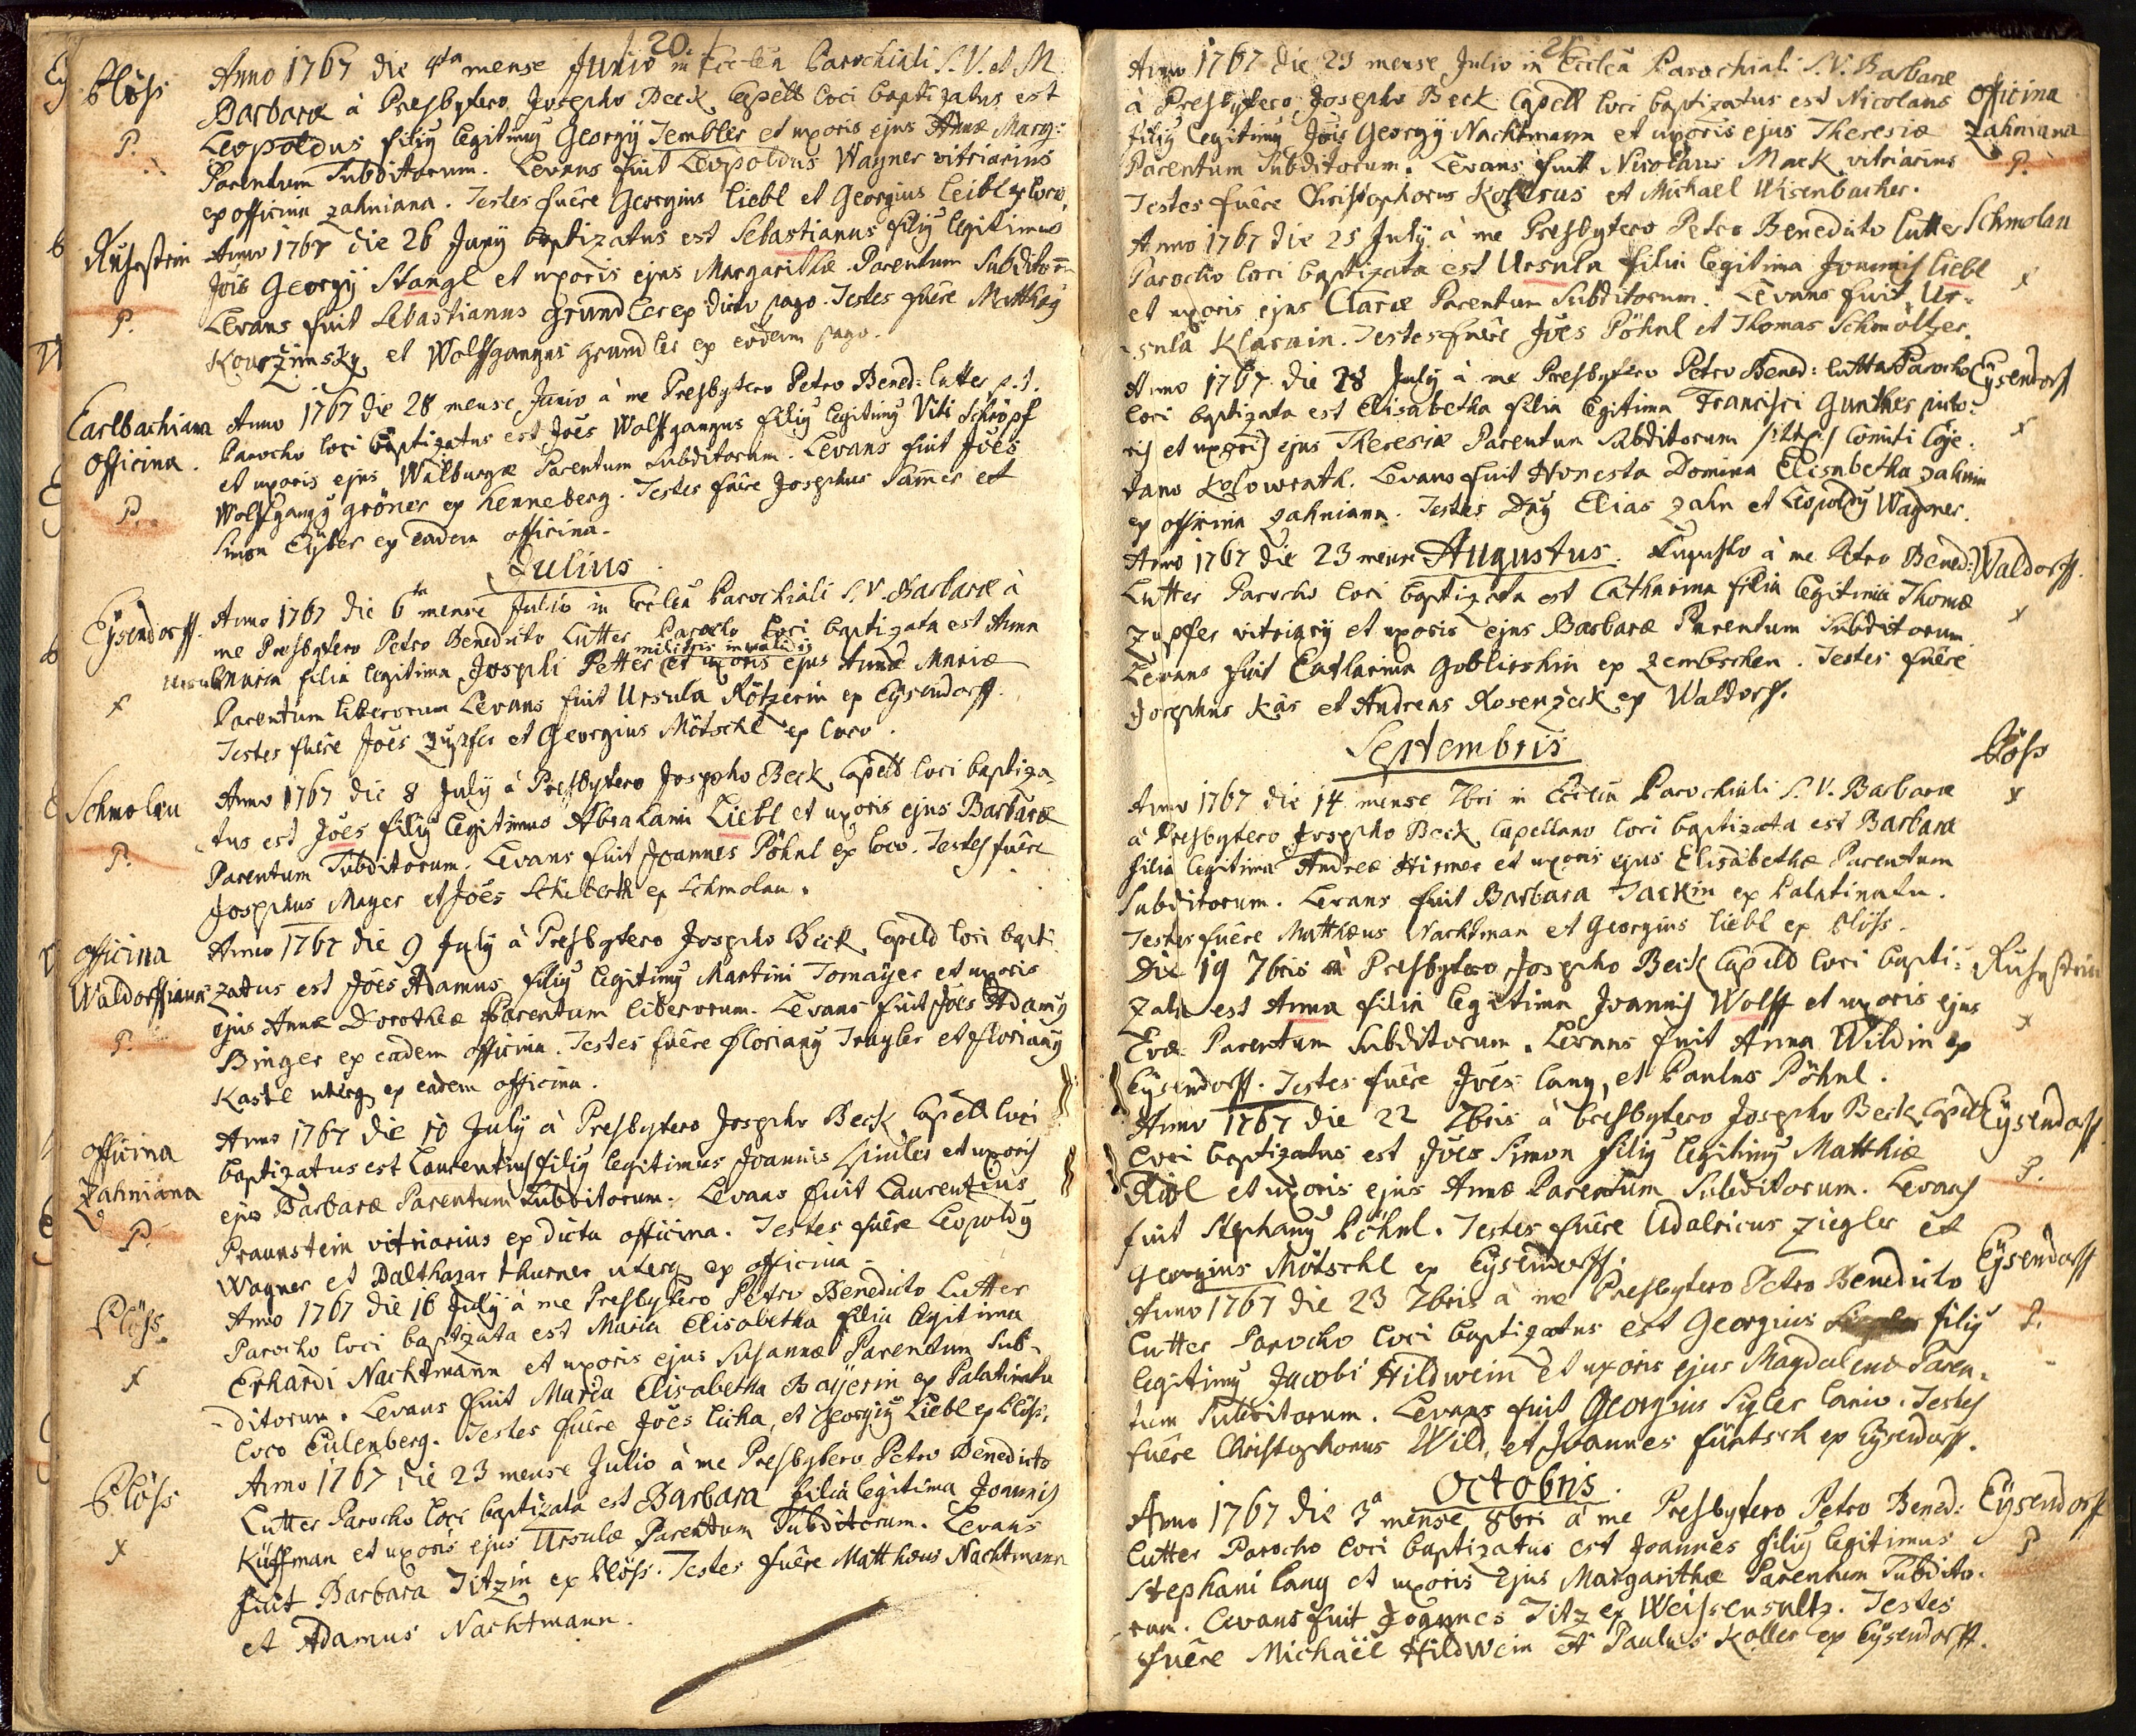 20.
Plöss
Anno 1767 die 4ta mense Junio in Eccleâ Parochiali S. V. et M
Barbaræ à Presbytero Josepho Beck Capell loci baptizatus est
P.
Leopoldus filiy legitimy Georgÿ Tembler et uxoris ejus Annæ Mary:
Parentum Subditorum. Levans fuit Leopoldus Wagner vitriarius
ex officina Zahniana. Testes fuêre Georgius Liebl et Georgius Leibl ex loco.
Ruhestein
Anno 1767 die 26 Junÿ baptizatus est Sebastianus filiy legitimus
Jois Georgÿ Stangl et uxoris ejus Margarithæ Parentum Subditorū
P.
Levans fuit Sebastianus Grundler ex dicto pago. Testes fuêre Matthæy
Kourzimsky et Wolffgangus Grundler ex eodem pago.
Carlbachiana
Anno 1767 die 28 mense Junio à me Presbytero Petro Bened: Lutter p.t.
Officina.
Parocho loci baptizatus est Joês Wolffgangus filiy legitimy Viti Schöpf
et uxoris ejus Walburgæ Parentum Subditorum. Levans fuit Joês
P.
Wolffgangy Gröner ex Henneberg. Testes fuêre Josephus Samer et
Simon Eÿber ex eadem officina.
Julius
Eÿsendorff.
Anno 1767 die 6ta mense Julio in Eccleâ Parochiali S. V. Barbaræ à
me Presbytero Petro Benedicto Lutter Parocho loci baptizata est Anna
militis invalidis
Ursula Maria filia legitima Josephi Petter et uxoris ejus Annæ Mariæ
x
Parentum liberorum Levans fuit Ursula Rötzerin ex Eÿsendorff.
Testes fuêre Joês Zupfer et Georgius Mötschl ex loco.
Schmolau
Anno 1767 die 8 July à Presbytero Josepho Beck Capell loci baptiza-
tus est Joês filiy legitimus Abrahami Liebl et uxoris ejus Barbaræ
P.
Parentum Subditorum. Levans fuit Joannes Pöhnl ex loco. Testes fuêre
Josephus Mayer et Joês Schiberth ex Schmolau.
Officina
Anno 1767 die 9 July à Presbytero Josepho Beck Capeld loci bapti
Waldorffiana
zatus est Joês Adamus filiy legitimy Martini Tomaÿer et uxoris
ejus Annæ Dorotheæ Parentum liberorum. Levans fuit Joês Adamy
P.
Binger ex eadem officina. Testes fuêre Floriany Trayler et Floriany
Kastl uterq ex eadem officina.
Officina
Anno 1767 die 10 July à Presbytero Josepho Beck Capell loci
Zahniana
baptizatus est Laurentius filiy legitimus Joannis et uxoris
ejus Barbaræ Parentum Subditorum. Levans fuit Laurentius
P.
Praunstein vitriarius ex dicta officina. Testes fuêre Leopoldy
Wagner et Balthazar Thurner uterq ex officina
Plöss
Anno 1767 die 16 July à me Presbytero Petro Benedicto Lutter
Parocho loci baptizata est Maria Elisabetha filia legitima
x
Erhardi Nachtmann et uxoris ejus Susannæ Parentum Sub-
ditorum. Levans fuit Maria Elisabetha Baÿerin ex Palatinatu
loco Eulenberg. Testes fuêre Joês Licha, et Georgiy Liebl ex Plöss.
Plöss
Anno 1767 die 23 mense Julio à me Presbytero Petro Benedicto
Lutter Parocho loci baptizata est Barbara filia legitima Joannis
x
Küffman et uxoris ejus Ursulæ Parentum Subditorum. Levans
fuit Barbara Titzin ex Plöss. Testes fuêre Matthæus Nachtmann
et Adamus Nachtmann.
21
Anno 1767 die 23 mense Julio in Eccleâ Parochiali S. V. Barbaræ
à Presbytero Josepho Beck Capell loci baptizatus est Nicolaus
Officina
filiy legitimy Jois Georgÿ Nachtmann et uxoris ejus Theresiæ
Zahniana
Parentum Subditorum. Levans fuit Nicolaus Mack vitriarius
P.
Testes fuêre Christophorus Kollerus et Michael Wisenbacher.
Anno 1767 die 25 July à me Presbytero Petro Benedicto Lutter
Schmolau
Parocho loci baptizata est Ursula filia legitima Joannis Liebl
x
et uxoris ejus Claræ Parentum Subditorum. Levans fuit Ur-
sula Klarnin. Testes fuêre Joês Pöhnl et Thomas Schmöltzer.
Anno 1767 die 28 July à me Presbytero Petro Bened: Lutter Parocho
Eÿsendorff
loci baptizata est Elisabetha filia legitima Francisci Gunther picto-
ris et uxoris ejus Theresiæ Parentum Subditorum Comiti Caje-
x
tano Kolowrath. Levans fuit Honesta Domina Elisabetha Zahnin
ex officina Zahniana. Testes Dny Elias Zahn et Leopoldy Wagner.
Augustus
Anno 1767 die 23 mense Augusto à me Petro Bened:
Waldorff.
Lutter Parocho loci baptizata est Catharina filia legitima Thomæ
x
Zupfer vitriarÿ et uxoris ejus Barbaræ Parentum Subditorum
Levans fuit Catharina Goblirshin ex Zembschen. Testes fuêre
Josephus Käs et Andreas Rosenzeck ex Waldorff.
Septembris
Plöss
Anno 1767 die 14 mense 7bri in Eccleâ Parochiali S. V. Barbaræ
x
à Presbytero Josepho Beck Capellano loci baptizata est Barbara
filia legitima Andreæ Hirmer et uxoris ejus Elisabethæ Parentum
Subditorum. Levans fuit Barbara Jackin ex Palatinatu.
Testes fuêre Matthæus Nachtman et Georgius Liebl ex Plöss.
Die 19 7bris à Presbytero Josepho Beck Capeld loci bapti-
Ruhestein
zata est Anna filia legitima Joannis Wolff et uxoris ejus
x
Evæ Parentum Subditorum. Levans fuit Anna Wildin ex
Eÿsendorff. Testes fuêre Joês Lang, et Paulus Pöhnl.
Anno 1767 die 22 7bris à Presbytero Josepho Beck Capell
Eÿsendorff.
loci baptizatus est Joês Simon filiy legitimy Matthiæ
P.
et uxoris ejus Annæ Parentum Subditorum. Levans
fuit Stephany Pöhnl. Testes fuêre Udalricus Ziegler et
Georgius Mötschl ex Eÿsendorff.
Eÿsendorff
Anno 1767 die 23 7bris à me Presbytero Petro Benedicto
Lutter Parocho loci baptizatus est Georgius filiy
P.
legitimy Jacobi Hildwein et uxoris ejus Magdalenæ Paren-
tum Subditorum. Levans fuit Georgius Sigler lanio. Testes
fuêre Christophorus Wild, et Joannes Fürtsch ex Eÿsendorff.
Octobris
Anno 1767 die 3a mense 8bri à me Presbytero Petro Bened:
Eÿsendorff
Lutter Parocho loci baptizatus est Joannes filiy legitimus
P
Stephani Lang et uxoris ejus Margarithæ Parentum Subdito-
rum. Levans fuit Joannes Titz ex Weissensultz. Testes
fuêre Michaël Hildwein et Paulus Koller ex Eÿsendorff.